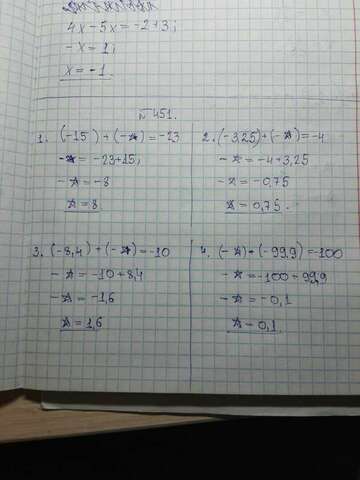 4x-5x=-2+3;
-x=1;
x=-1.
№451.
1. (-15)+(-☆)=-23
-☆=-23+15;
-☆=-8
☆=8
2. (-3,25)+(-☆)=-4
-☆=-4+3,25
-☆=-0,75
☆=0,75.
3. (-8,4)+(-☆)=-10
-☆=-10+8,4
-☆=-1,6
☆=1,6
4. (-☆)+(-99,9)=-100
-☆=-100+99,9
-☆=-0,1
☆-0,1.